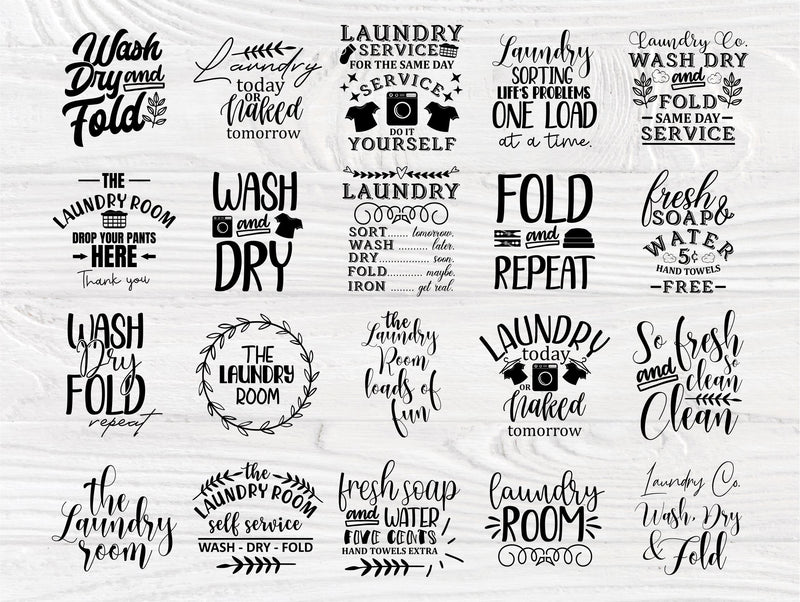 Wash
Dry and
Fold
Laundry
today
OR
Naked
tomorrow
LAUNDRY
SERVICE
FOR THE SAME DAY
SERVICE
DO IT
YOURSELF
Laundry
SORTING
LIFE'S PROBLEMS
ONE LOAD
at a time.
Laundry Co.
WASH DRY
and
FOLD
SAME DAY
SERVICE
THE
LAUNDRY ROOM
DROP YOUR PANTS
HERE
Thank you
WASH
and
DRY
LAUNDRY
SORT....... tomorrow.
WASH .......... later.
DRY............ soon.
FOLD............ maybe.
IRON ......... get real.
FOLD
and
REPEAT
fresh
SOAP &
WATER
5¢
HAND TOWELS
-FREE-
WASH
Dry
FOLD
repeat
THE
LAUNDRY
ROOM
the
Laundry
Room
loads of
fun
LAUNDRY
today
OR
Naked
tomorrow
So fresh
and so
clean
Clean
the
Laundry
room
the
LAUNDRY ROOM
self service
WASH - DRY - FOLD
fresh soap
and WATER
FIVE CENTS
HAND TOWELS EXTRA
laundry
ROOM
Laundry Co.
Wash, Dry
& Fold